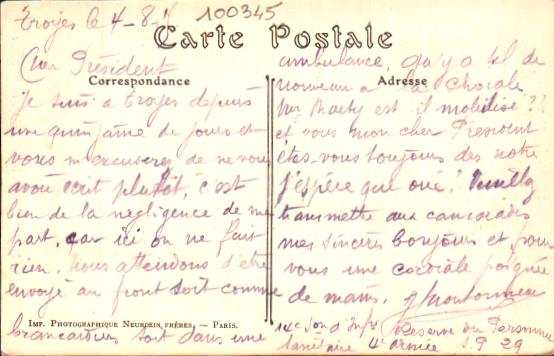 100345
Troyes le 4-8-
Carte Postale
Cher Président
Correspondance
Je suis a Troyes depuis
une quinzaine de jours et
vous m'excuseres de ne vous
avoir ecrit plutôt, c'est
bien de la negligence de ma
part, car ici on ne fait
rien. Nous attendons d'être
envoyé au front soit comme
IMP. PHOTOGRAPHIQUE NEURDEIN FRÈRES. — PARIS.
brancardiers soit dans une
ambulance, qu'y a t'il de
Adresse
nouveau a la Chorale
Mr est il mobilisé??
et vous mon cher President
êtes-vous toujours des notre
J'espère que oui? Veuillez
transmettre aux camarades
mes sincères bonjours et pour
vous une cordiale poignée
de mains.
14e Son d'Infrs Reserve du Personnel
Sanitaire 4e Armée S.P 29